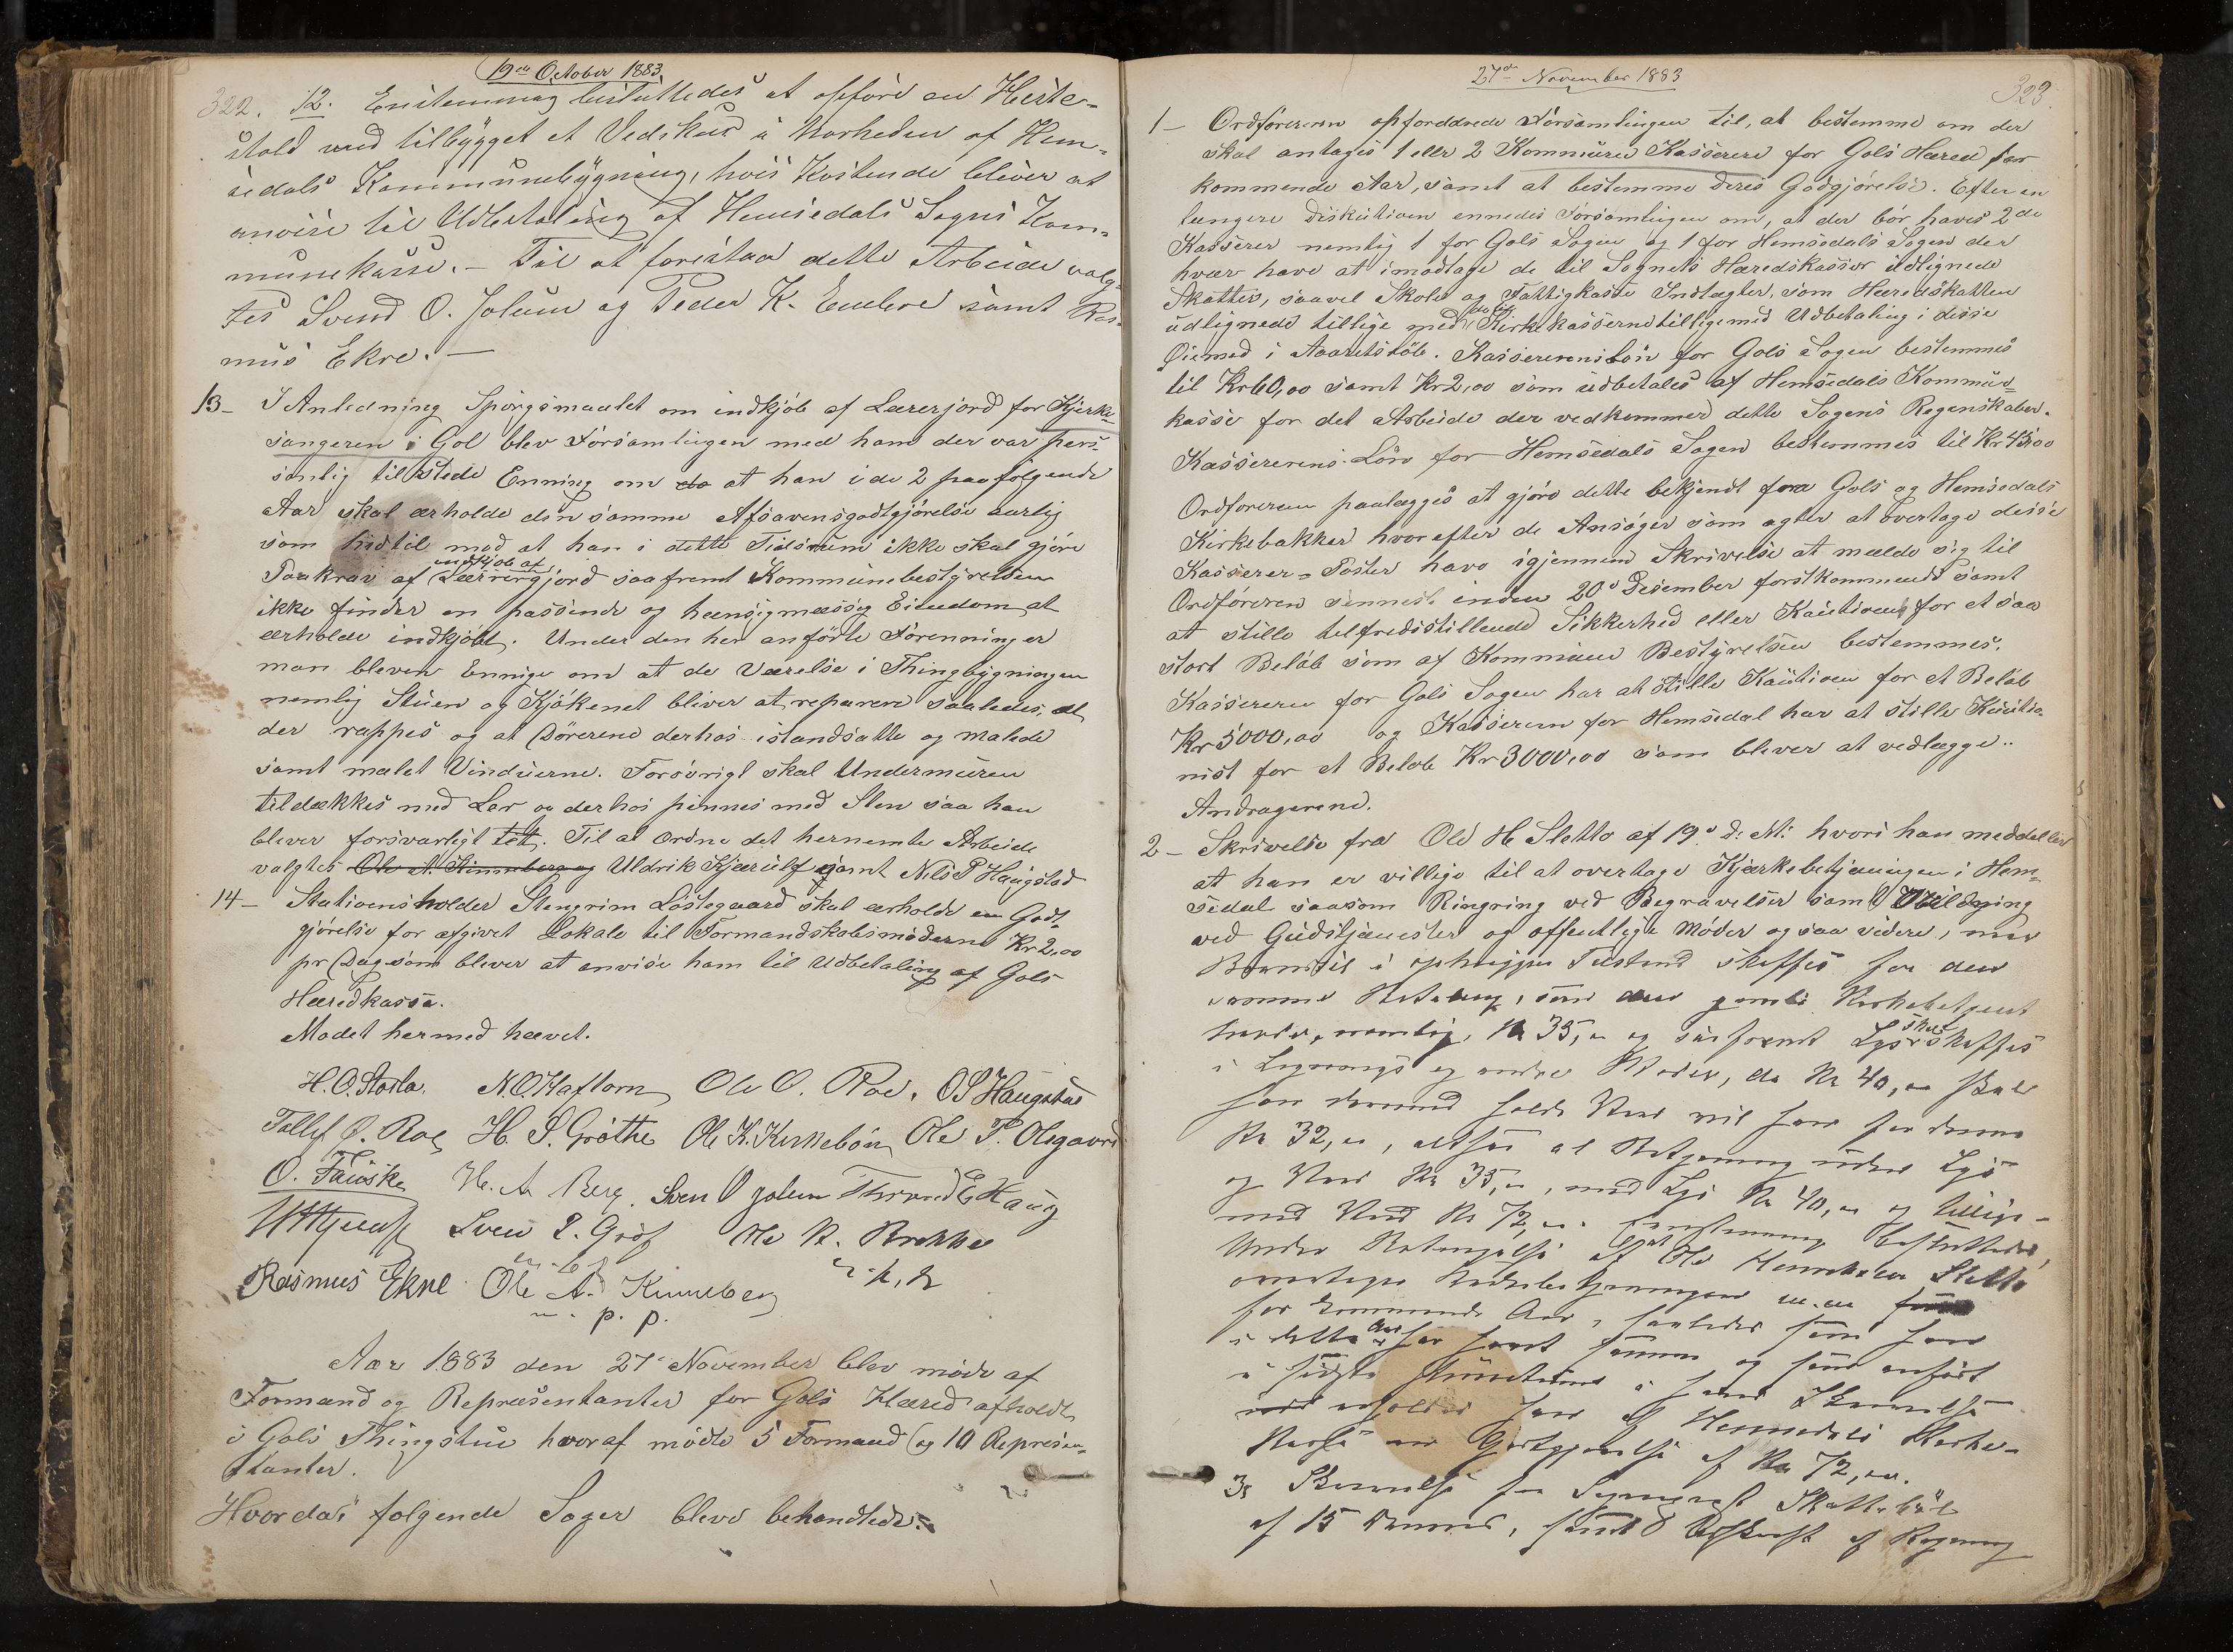 19de October 1883
322. 12. Enstemmig besluttedes at opføre en Heste-
stald med tilbygget et Vedskur i Nærheden af Hem-
sedals Kommunebygning, hvis Kostende bliver at
anvise til Udbetaling af Hemsedals Sogns Kom-
munekasse. – Til at forestaa dette Arbeide valg-
tes Svend O. Jolum og Peder K. Embre samt Ras-
mus Ekre. –
13– I Anledning Spørgsmaalet om indkjøb af Lærerjord for Kjerke-
sangeren i Gol blev Forsamlingen med ham der var pers-
sonlig tilstede Enning om da at han i de 2 paafølgende
Aar skal erholde den samme Afsavensgodtgjørelse aarlig
som hidtil mod at han i dette Tidsrum ikke skal gjøre
indkjøb af
Paakrav af Lærrergjord saafremt Kommunebestyrelsen
ikke finder en passende og hensigmæssig Eiendom at
erholde indkjøbt. Under den her anførte Forenning er
man bleven Ennige om at de Værelse i Thingbygningen
nemlig Stuen og Kjøkenet bliver at reparere saaledes, at
der rappes og at Dørerene derhos istandsatte og malede
samt malet Vinduerne. Forøvrigt skal Undermuren
tildækkes med Ler og derhos pinnes med Sten saa han
blever forsvarligt tet. Til at ordne det hernemte Arbeide
valgtes Ole A. Kinneberg og Uldrik Kjærulf samt Nils P Haugstad
14– Stationsholder Stengrim Løstegaard skal erholde en Godt-
gjørelse for afgivet Lokale til Formandskabsmøderne Kr 2,00
pr Dag som blever at anvise ham til Udbetaling af Gols
Heredkasse.
Mødet hermed hævet.
H. O. Storla. N. O. Haftorn Ole O. Roe. O S Haugstad
Tollef O. Roe H. S. Grøthe Ole K. Kirkebøn Ole P. Olsgaard
O. Fauske H. A. Berg. Sven O Jolum Thrond E Haug
Sven P. Grøf Ole N. Brekke
Rasmus Ekre Ole A. Kinneberg
m. p. p.
Aar 1883 den 27de November blev møde af
Formand og Repræsentanter for Gols Hæred afholdt
i Gols Thingstue hvoraf mødte 5 Formand og 10 Represen-
tanter.
Hvordas følgende Sager blevo behandlede:
27de November 1883
323.
1– Ordføreren opfordrede Forsamlingen til, at bestemme om der
skal antages 1 eller 2 Kommune Kasserere for Gols Hæred for
kommende Aar, samt at bestemme deres Godgjørelse. Efter en
lengere Diskution ennedes Forsamlingen om, at der bør haves 2de
Kasserer nemlig 1 for Gols Sogen og 1 for Hemsedals Sogen der
hver have at imodtage de til Sognets Hæredskasser udlignede
Skatter, saavel Skole og Fattigkasse Indtægter, som Hæredskatten
udlignede tillige med Kirkekasserne tilligemed Udbetaling i disse
Øiemed i Aaretsløb. Kassererens Løn for Gols Sogen bestemmes
til Kr 60,00 samt Kr 2,00 som udbetales af Hemsedals Kommune-
kasse for det Arbeide der vedkommer dette Sogens Regenskaber.
Kassererens Løn for Hemsedals Sogen bestemmes til Kr 45,00
Ordføreren paalægges at gjøre dette bekjendt fra Gols og Hemsedals
Kirkebakker hvorefter de Ansøger som agter at overtage disse
Kasserer-Poster have igjennem Skrivelse at melde sig til
Ordføreren sennest inden 20de Desember førstkommende samt
at stille telfredsstillende Sikkerhed eller Kautioner for et saa
stort Beløb som af Kommune Bestyrelsen bestemmes.
Kassereren for Gols Sogen har at stille Kaution for et Beløb
Kr 5000,00 og Kassereren for Hemsedal har at stille Kautio-
nist for et Beløb Kr 3000,00 som blever at vedlægge
Andragerene.
2– Skrivelse fra Ole H Sletto af 19de d. M. hvori han meddeller
at han er villige til at overtage Kjærkebetjæningen i Hem-
sedal saasom Ringning ved Begravelser samt
ved Gudstjænester og offentlige Møder og saa videre,
i Tilstand skaffes for den
samme Betaling, som den gamle Kirkebetjent
havde, nemlig, Kr 35,00 og saafremt Lys skal skaffes
i og andre Møder, da Kr 40,00 skal
han holde Ved vil han for denne
Kr 32,00, altsaa at Betjening uden Lys
og Ved Kr 35,00, med Lys Kr 40,00 og tillige-
med Ved Kr 72,00. Enstemmig besluttedes
under at Ole Sletto
overtager m. m.
for kommende Aar, saaledes som han
i dette Aar har havt samme og som anført
i sidste i hans Skrivelse
erholder han af Hemsedals Kirke-
kasse en Godtgjørelse af Kr 72,00.
3. Skrivelse fra
af 15 samt Udskrift af Regning